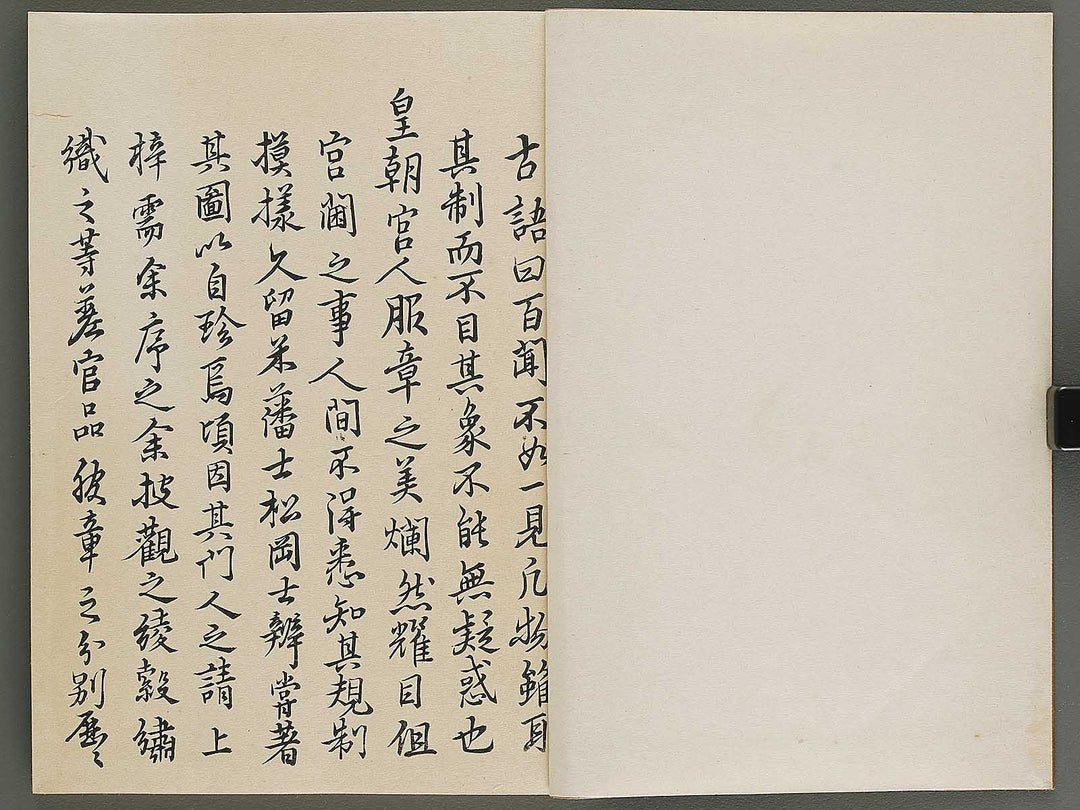 古語曰百聞不如一見凡物雖耳
其制而不目其象不能無疑惑也
皇朝宮人服章之美爛然耀目但
宮闈之事人間不得悉知其規制
摸樣久留米藩士松岡士辨嘗著
其圖以自珍焉頃因其門人之請上
梓需余序之余披觀之綾縠繡
織之等差官品服章之分別歷〻